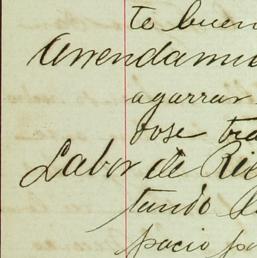 te buen
Arrendamie
agarrar
dose tra
Labor de Rie
tando
pacio po